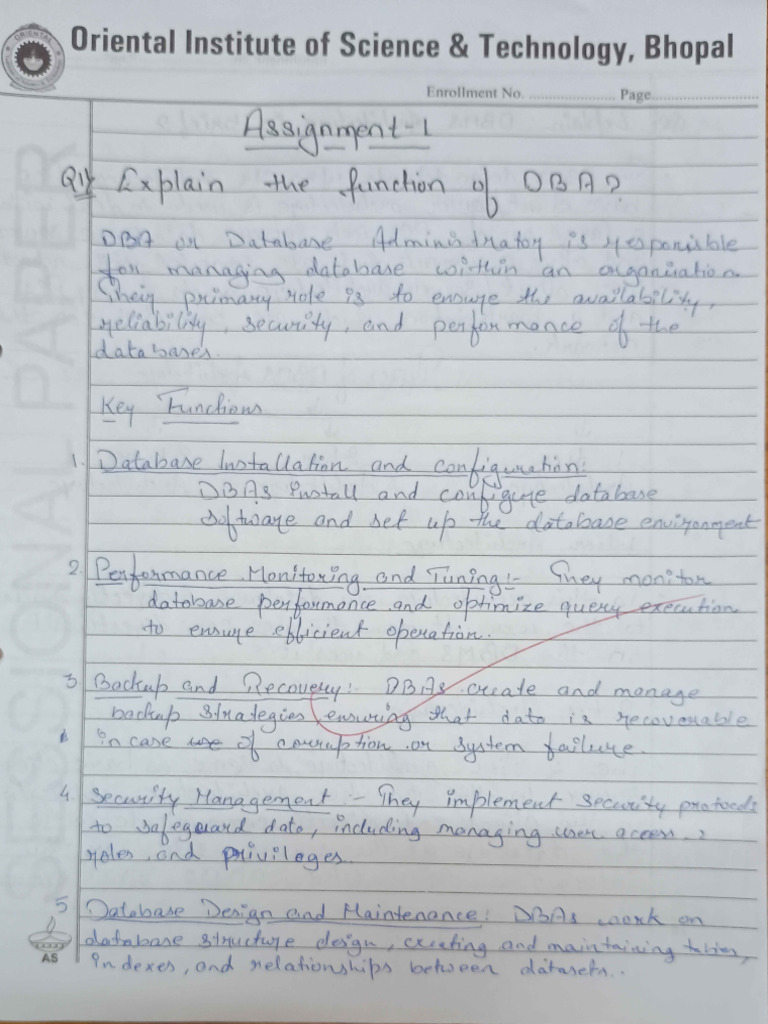 Oriental Institute of Science & Technology, Bhopal
Enrollment No. ..................... Page..........................
Assignment-1
Q1) Explain the function of DBA?
DBA or Database Administrator is responsible
for managing database within an organisation.
Their primary role is to ensure the availability,
reliability, security, and performance of the
databases.
Key Functions
1. Database Installation and configuration:
DBAs install and configure database
software and set up the database environment
2. Performance Monitoring and Tuning:- They monitor
database performance and optimize query execution
to ensure efficient operation.
3 Backup and Recovery: DBAs create and manage
backup strategies ensuring that data is recoverable
in case of corruption or system failure.
4. Security Management :- They implement security protocols
to safeguard data, including managing user access,
roles, and privileges.
5 Database Design and Maintenance: DBAs work on
database structure design, creating and maintaining tables,
indexes, and relationships between datasets..
SESSIONAL PAPER
AS